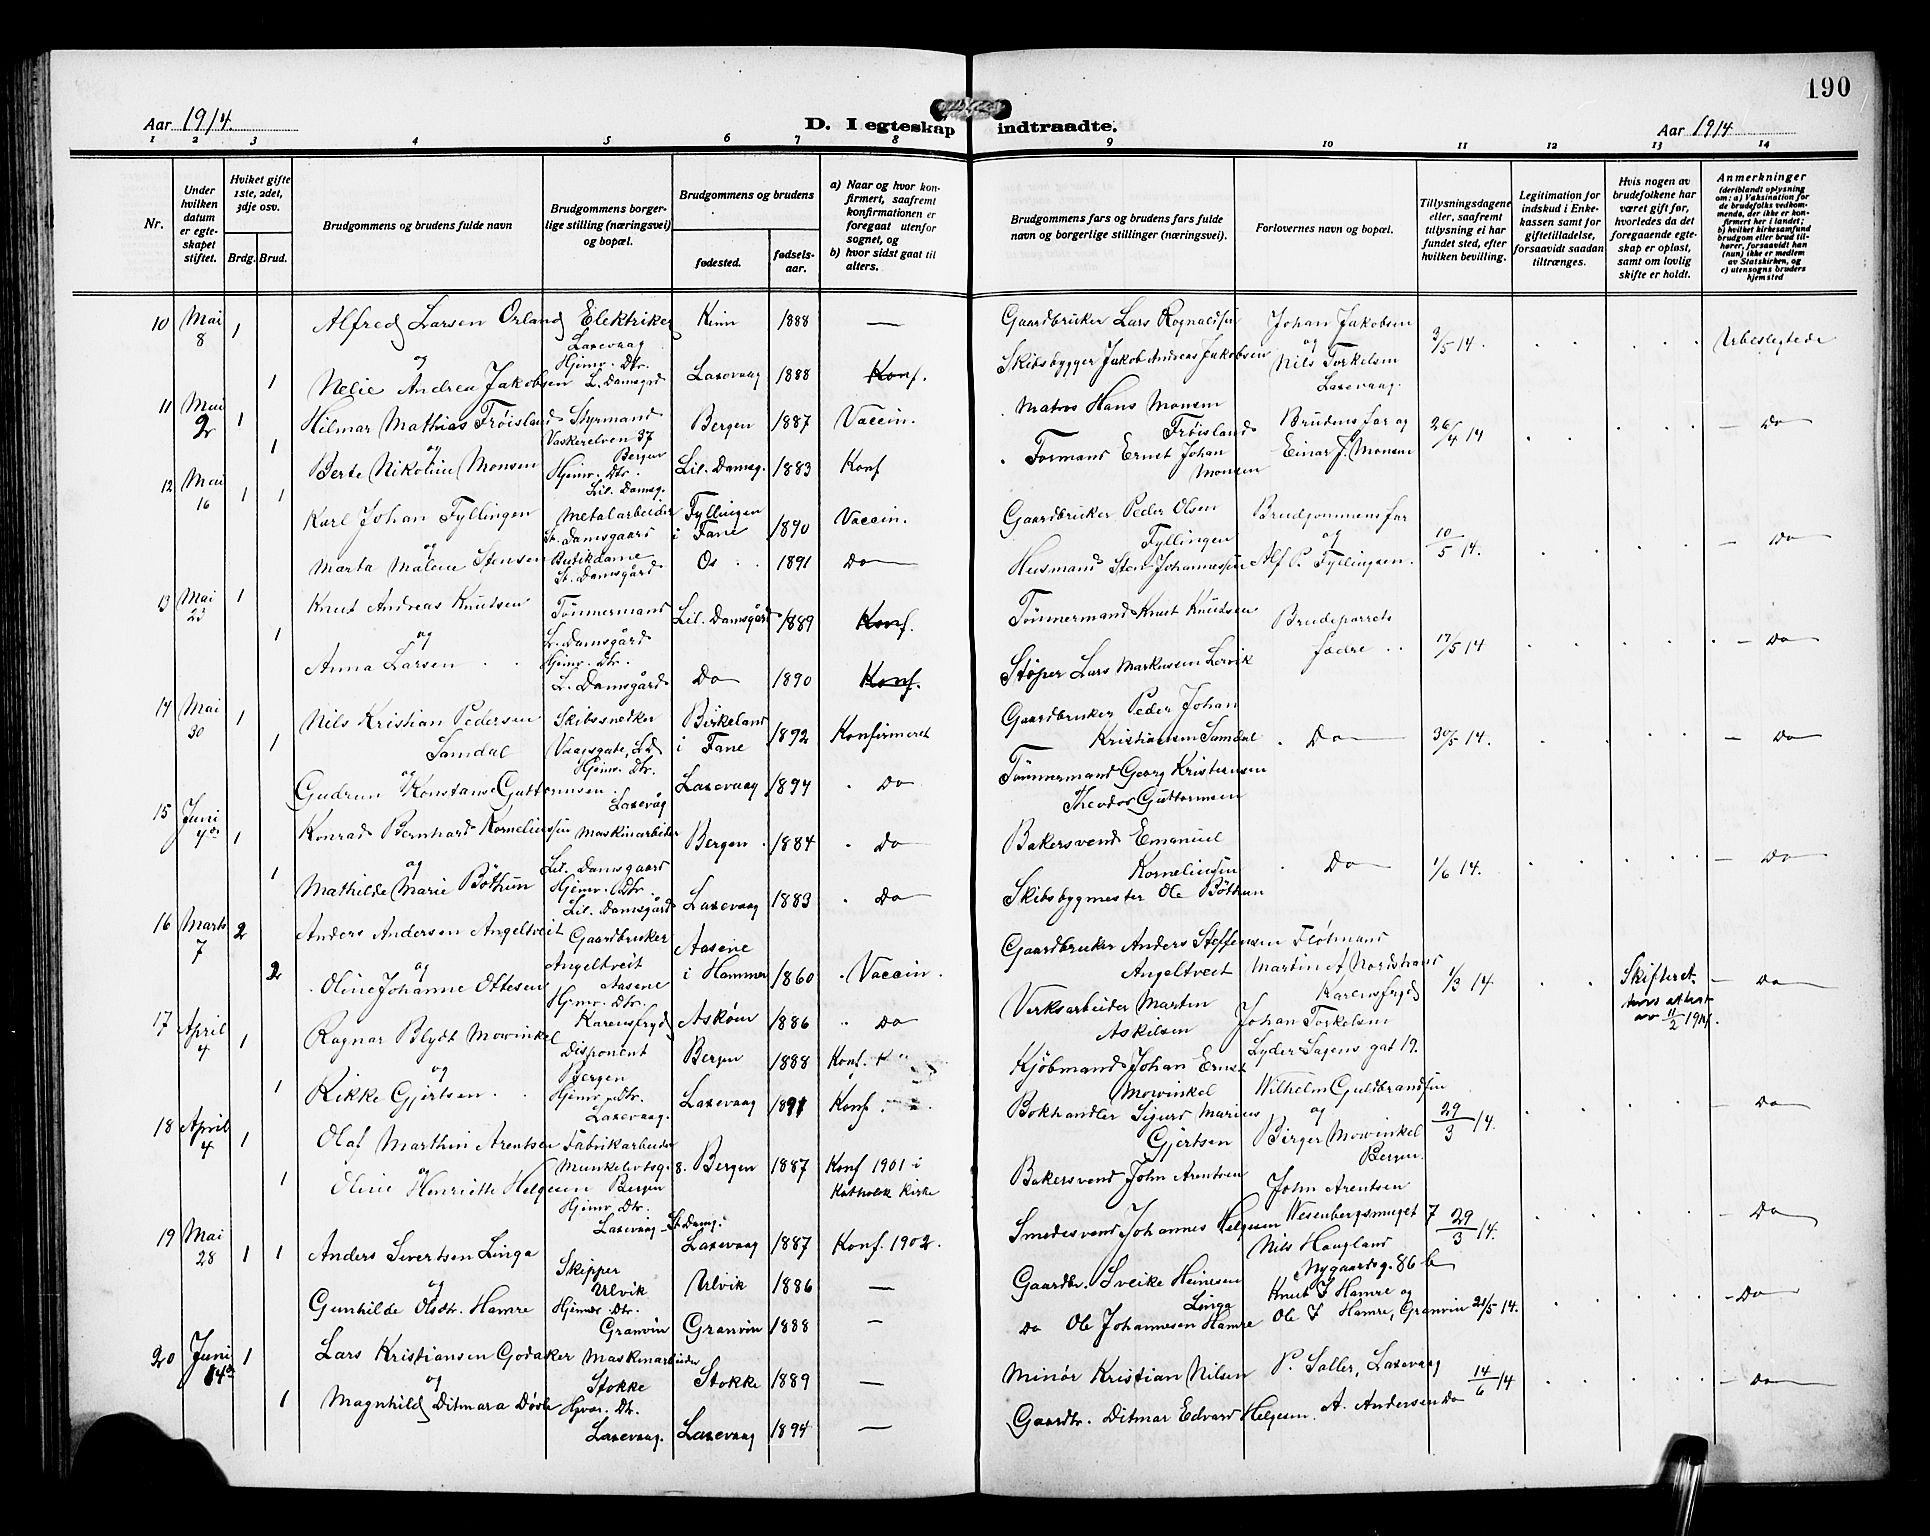 190
Aar 1914.
D. I egteskap indtraadte.
Aar 1914
1 2 3 4 5 6 7 8 9 10 11 12 13 14
Nr.
Under hvilken datum er egteskapet stiftet.
Hviket gifte 1ste, 2det, 3dje osv.
Brdg. Brud.
Brudgommens og brudens fulde navn
Brudgommens borgerlige stilling (næringsvei) og bopæl.
Brudgommens og brudens
fødested.
fødselsaar.
a) Naar og hvor konfirmert, saafremt konfirmationen er foregaat utenfor sognet, og
b) hvor sidst gaat til alters.
Brudgommens fars og brudens fars fulde navn og borgerlige stillinger (næringsvei).
Forlovernes navn og bopæl.
Tillysningsdagene eller, saafremt tillysning ei har fundet sted, efter hvilken bevilling.
Legitimation for indskud i Enkekassen samt for giftetilladelse, forsaavidt saadan tiltrænges.
Hvis nogen av brudefolkene har været gift før, hvorledes da det foregaaende egteskap er opløst, samt om lovlig skifte er holdt.
Anmerkninger
(deriblandt oplysning om: a) Vaksination for de brudefolks vedkommende, der ikke er konfirmert her i landet; b) hvilket kirkesamfund brudgom eller brud tilhører, forsaavidt han (hun) ikke er medlem av Statskirken, og c) utensogns bruders hjemsted
10 Mai 8 1 Alfred Larsen Orland Elektriker Kinn 1888 — Gaardbruker Lars Rognaldsen Johan Jakobsen 3/5 14. Ubeslegtede
og Laxevaag og
1 Nelie Andrea Jakobsen Hjemv. Dtr. L. Damsgrd Laxevaag 1888 Konf. Skibsbygger Jakob Andreas Jakobsen Nils Torkelsen Laxevaag.
11 Mai 2 1 Hilmar Mathias Frøisland Styrmand Bergen 1887 Vaccin. Matros Hans Monsen Frøisland Brudens far og 26/4 14 — Do
og Vaskerelven 37 Bergen
1 Berte Nikoline Monsen Hjemv. Dtr. Lil. Damsg. Lil. Damsg. 1883 Konf Formand Ernst Johan Monsen Einar J. Monsen
12 Mai 16 1 1 Karl Johan Fyllingen Metalarbeider St. Damsgaard Fyllingen i Fane 1890 Vaccin. Gaardbruker Peder Olsen Fyllingen Brudgommens far 10/5 14. — Do
og og
Marta Malene Stensen Butikdame St. Damsgård Os 1891 Do Husmand Sten Johannessen Alf P. Fyllingsen.
13 Mai 23 1 Knut Andreas Knudsen Tømmermand Lil. Damsgård 1889 Konf. Tømmermand Knut Knudsen Brudeparrets 17/5 14 — Do
og L. Damsgård
1 Anna Larsen Hjemv. Dtr. L. Damsgård Do 1890 Konf. Støper Lars Markussen Lervik fædre
14 Mai 30 1 Nils Kristian Pedersen Samdal Skibssnedker Birkeland i Fane 1892 Konfirmeret Gaardbruker Peder Johan Kristiansen Samdal Do 30/5 14. — Do
og
1 Gudrun Konstanse Guttormsen Hjemv. Dtr. Laxevåg Laxevaag 1894 Do Tømmermand Georg Kristiansen Theodor Guttormsen
15 Juni 4de 1 Konrad Bernhard Korneliussen Maskinarbeider Bergen 1884 Do Bakersvend Emanuel Kornelinsen Do 1/6 14. — Do
og Lil. Damsgaard
1 Mathilde Marie Bøthun Hjemv. Dtr. Lil. Damsgård Laxevaag 1883 Do Skibsbygmester Ole Bøthun
16 Marts 7 2 Anders Andersen Angeltveit Gaardbruker Angeltveit Aasene Aasene i Hammer 1860 Vaccin. Gaardbruker Anders Steffensen Angeltveit Flötmand Martin A Nordstrand Karensfryd 1/3 14. Skifterettens attest av 11/2 1914. — Do
og
2 Oline Johanne Ottesen Hjemv. Dtr. Karensfryd Askøen 1886 Do Verksarbeider Martin Askilsen Johan Torkelsen
17 April 4 1 Ragnar Blydt Mowinkel Disponent Bergen Bergen 1888 Konf. Kjöbmand Johan Ernst Mowinkel Lyder Sagens gat 19. Wilhelm Guldbrandsen 29/3 14. — Do
og og
1 Rikke Gjertsen Hjemv. Dtr. Laxevaag. Laxevaag 1891 Konf. Bokhandler Sigurd Marius Gjertsen Birger Mowinkel Bergen.
18 April 4 1 Olaf Marthin Arentsen Fabrikarbeider Munkelivtsg. 8. Bergen Bergen 1887 Konf 1901 i Katholsk Kirke Bakersvend John Arentsen John Arentsen Wesenbergsmuget 7 29/3 14. — Do
og
1 Oline Henriette Helgesen Hjemv. Dtr. Laxevaag - St. Damg. Laxevaag 1887 Konf. 1902. Smedesvend Johannes Helgesen Nils Haugland Nygaardsg. 86 b
19 Mai 28 1 1 Anders Sivertsen Linga Skipper Ulvik Ulvik 1886 — Gaardbr. Sveike Heinesen Linga Knut J Hamre og 21/5 14. — Do
og
Gunhilde Olsdtr. Hamre Hjemv. Dtr. Granvin Granvin 1888 — Do Ole Johannesen Hamre Ole J Hamre, Granvin
20 Juni 14de 1 Lars Kristiansen Godaker Maskinarbeider Stokke Stokke 1889 — Minør Kristian Nilsen P. Saller, Laxevaag 14/6 14 — Do
og
1 Magnhild Ditmara Døsle Hjvær. Dtr. Laxevaag. Laxevaag 1894 — Gaardbr. Ditmar Edvard Helgesen. A. Andersen Do